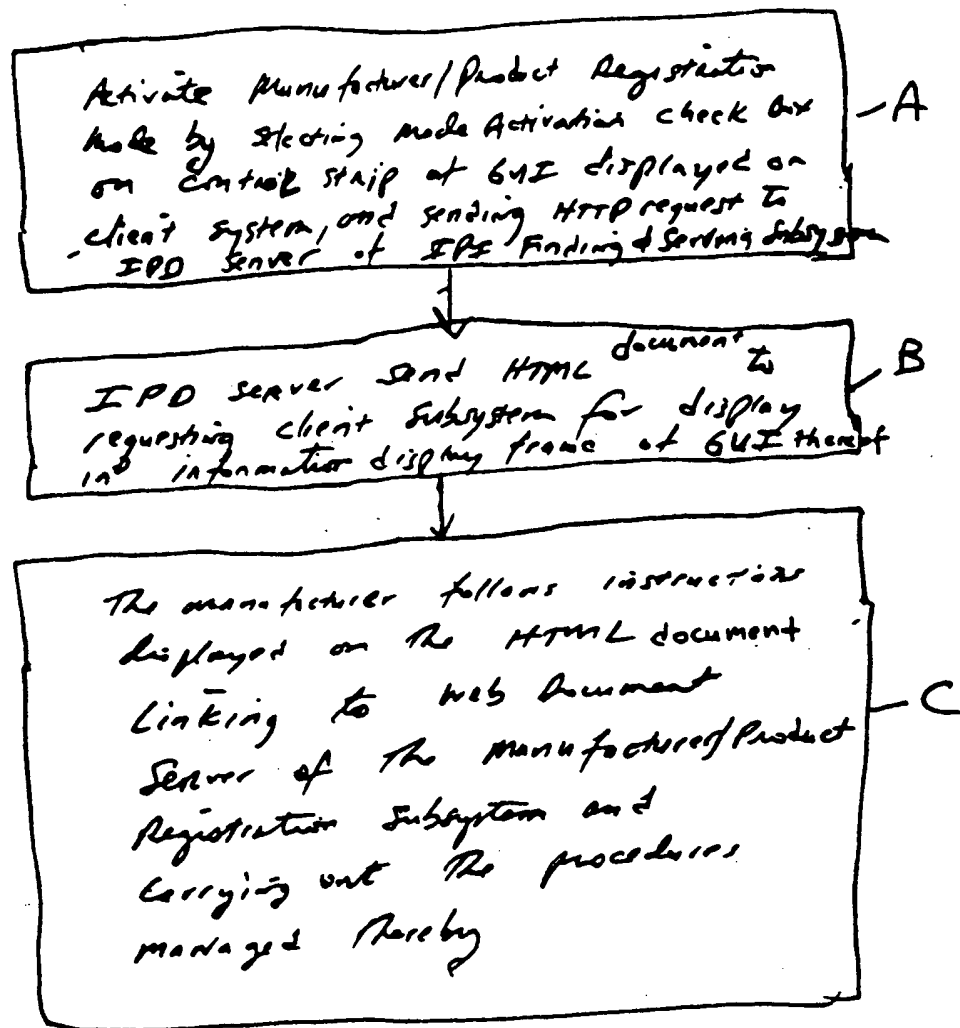 Activate Manufacturer/Product Registration
Mode by selecting Mode Activation check box
on control strip of GUI displayed on
client system, and sending HTTP request to
IPD server of IPI Finding & Serving Subsystem
A
IPD server send HTML document to
requesting client Subsystem for display
in information display frame of GUI thereof
B
The manufacturer follows instructions
displayed on the HTML document
Linking to Web Document
Server of the Manufacturer/Product
Registration Subsystem and
Carrying out the procedures
managed thereby
C